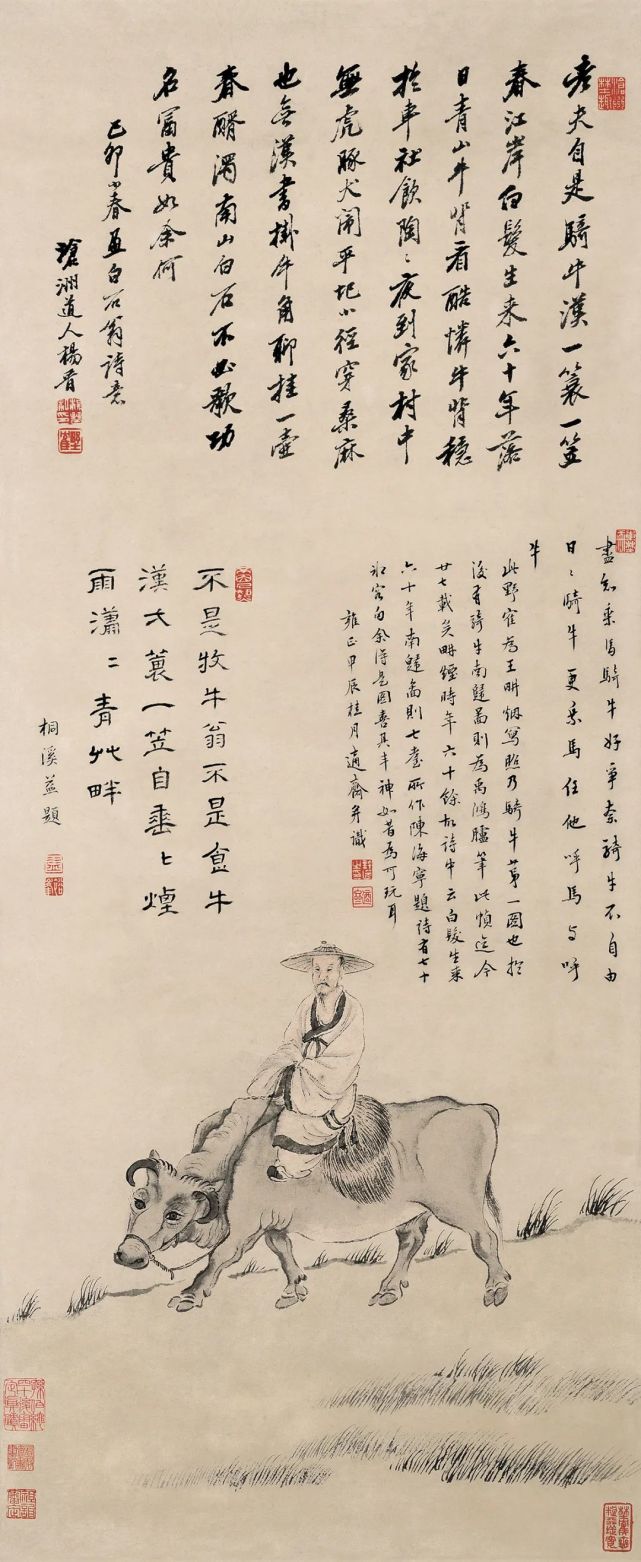 老夫自是騎牛漢一蓑一笠
春江岸白髮生来六十年落
日青山牛背看酷憐牛背穩
於車社飲陶〻夜到家村中
無虎豚犬鬧平地小徑穿桑麻
也無漢書掛牛角聊挂一壺
春醑濁南山白石不必歌功
名富貴如余何
己卯小春畫白石翁詩意
滄洲道人楊晉
盡知乘馬騎牛好爭奈騎牛不自由
日〻騎牛更乘馬任他呼馬与呼
牛
此野崔為王畊烟寫照乃騎牛第一圖也於
後有騎牛南髓啚則為禹鴻臚筆此幀迄今
廿七載矣畊煙時年六十餘故詩中云白髮生来
六十年南髓啚則七耋所作陳海寧題詩有七十
牀客句余得是圖喜其丰神如昔為可玩耳
雍正甲辰桂月適齋并識
不是牧牛翁不是食牛
漢大蓑一笠自垂〻煙
雨瀟〻青艸畔
桐溪益題